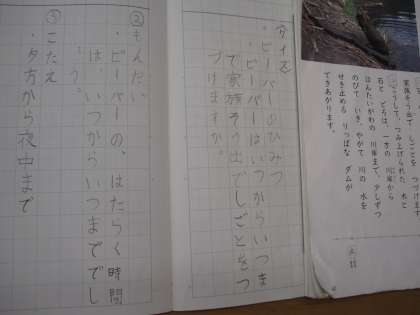 家族そう出で しごとを つづけま
こうして、つみ上げられた 木と
石と どろは、一方の 川岸から
はんたいがわの 川岸まで、少しずつ
のびて いき、やがて 川の 水を
せき止める りっぱな ダムが
できあがります。
クイズ
・ビーバーのひみつ
・ビーバーはいつからいつま
で家族そう出でしごとをつ
づけますか。
②もんだい
・ビーバーの、はたらく時間
は、いつからいつまででし
ょう。
③こたえ
・夕方から夜中まで